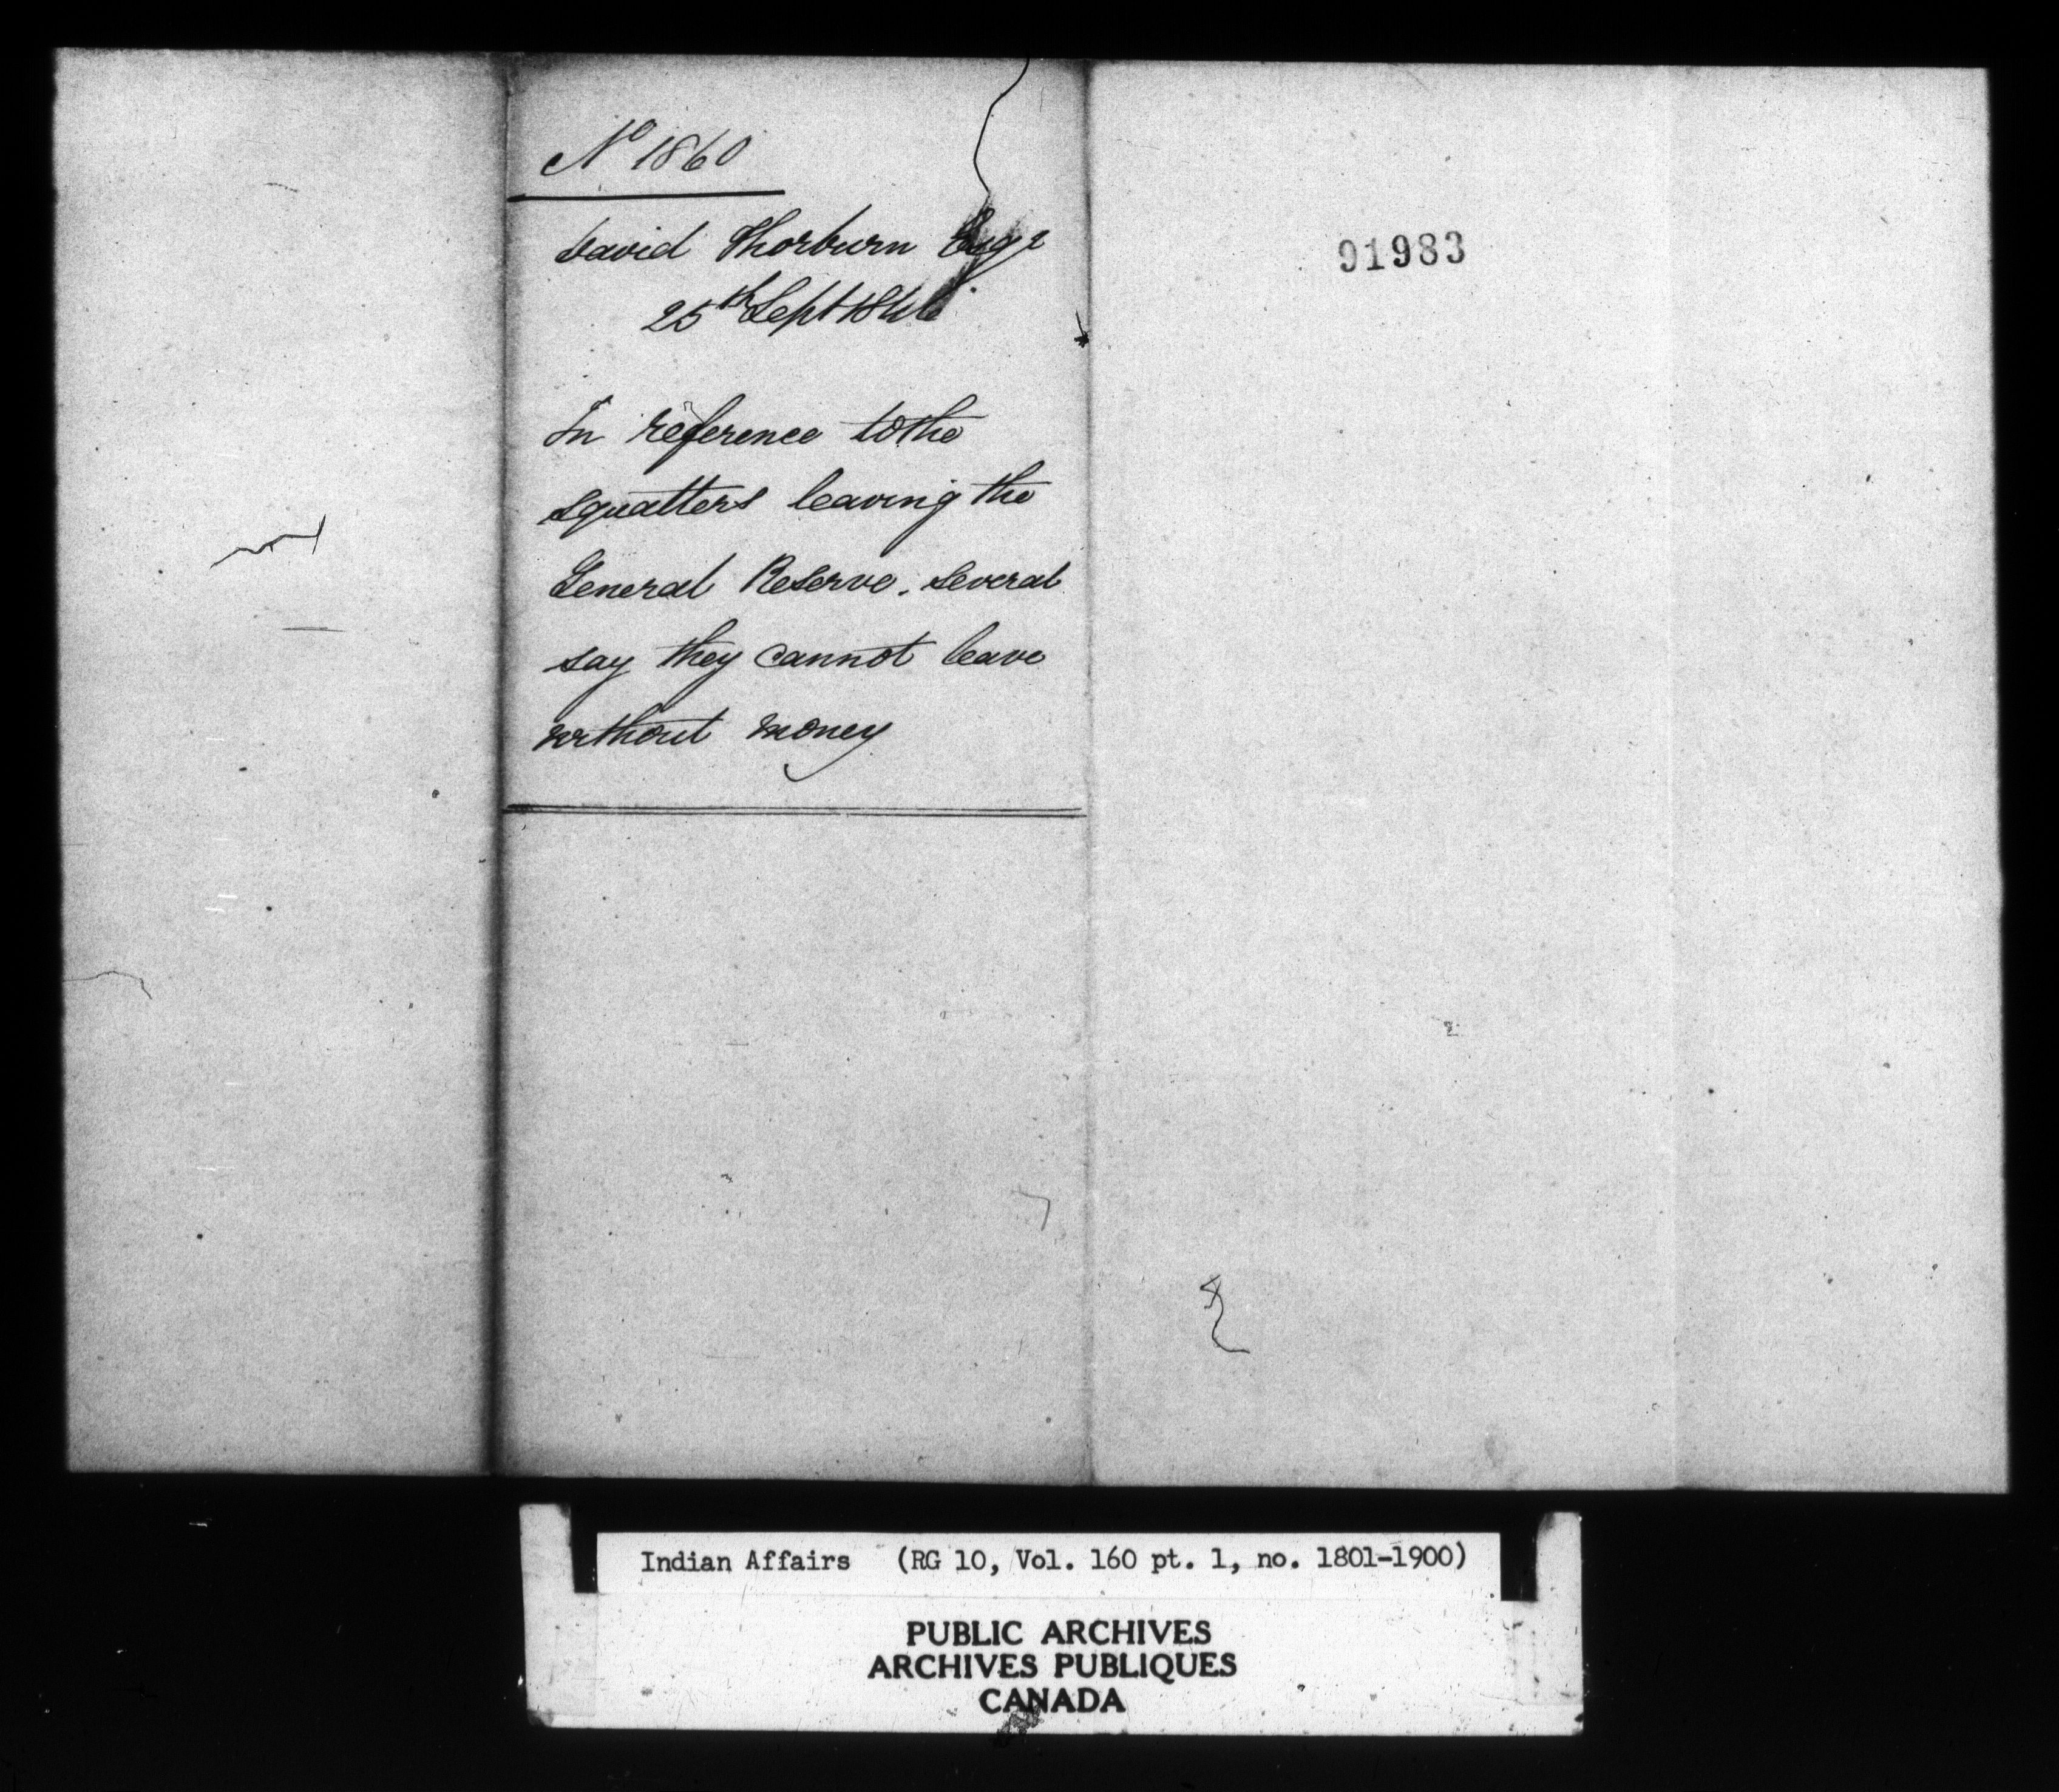 No 1860
David Thorburn Esqr
25th Sept 1846
In reference to the
squatters leaving the
General Reserve. Several
say they cannot leave
without money
91983
Indian Affairs (RG 10, Vol. 160 pt. 1, no. 1801-1900)
PUBLIC ARCHIVES
ARCHIVES PUBLIQUES
CANADA